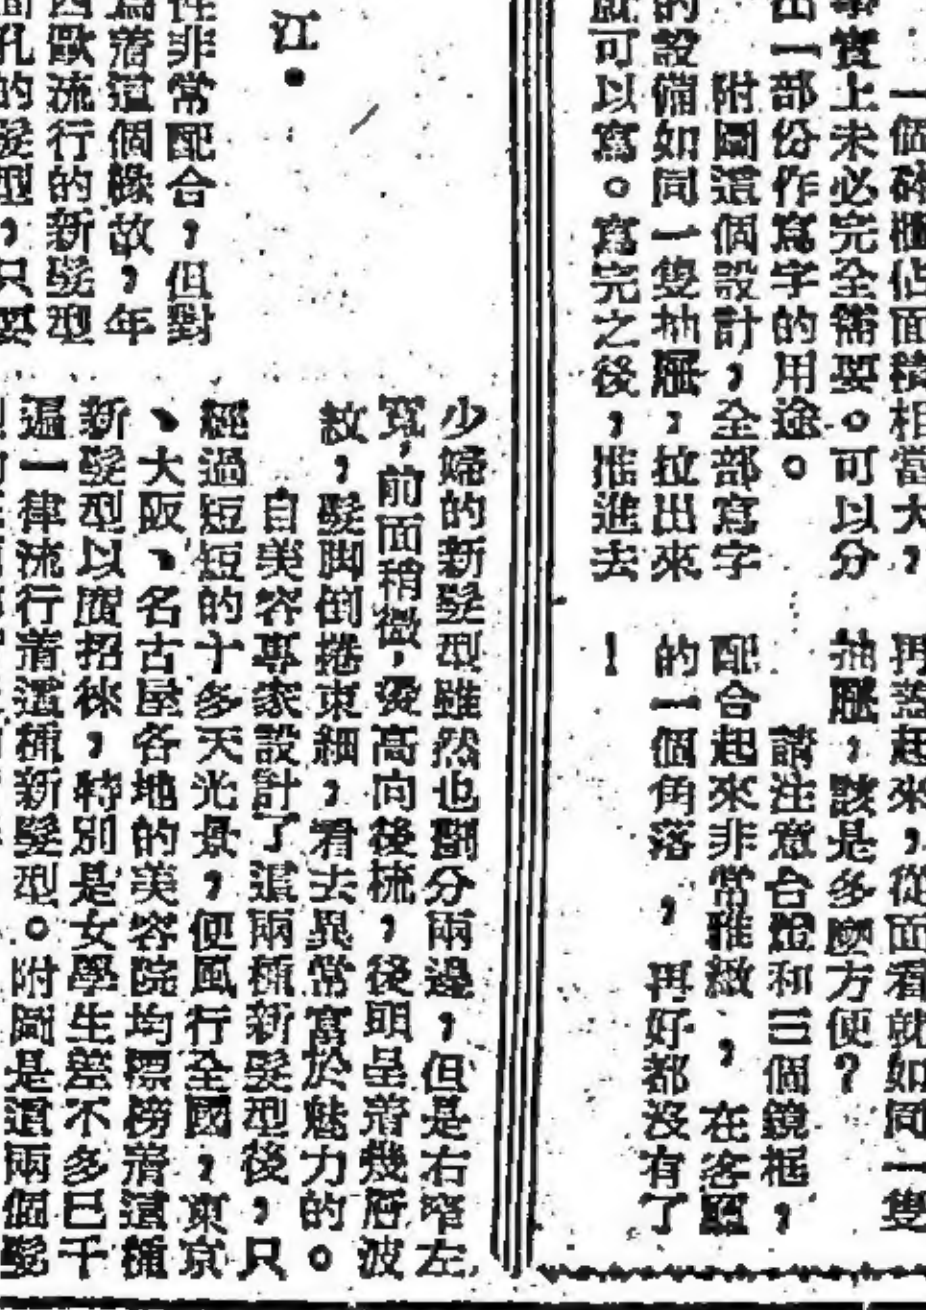 一個磚櫃佔面積相當大，
事實上未必完全需要。可以分
出一部份作寫字的用途。
附圖這個設計，全部寫字
的設備如同一隻抽屜，拉出來
就可以寫。寫完之後，推進去
再蓋起來，從面看就如同一隻
抽屜，該是多麽方便？
請注意台燈和三個鏡框，
配合起來非常雅緻，在客廳
的一個角落，再好都沒有了
！
江·
性非常配合，但對
爲着這個緣故，年
西歐流行的新髮型
面孔的髮型，只要
少婦的新髮型雖然也劃分兩邊，但是右窄左
寬，前面稍微，裦高向後梳，後明呈着幾層波
紋，髮脚倒捲東細，看去異常富於魅力的。
自美容專家設計了這兩種新髮型後，只
經過短短的十多天光景，便風行全國，東京
、大阪、名古屋各地的美容院均標榜着這種
新髮型以廣招徠，特別是女學生差不多已千
遍一律流行着這種新髮型。附圖是這兩個髮